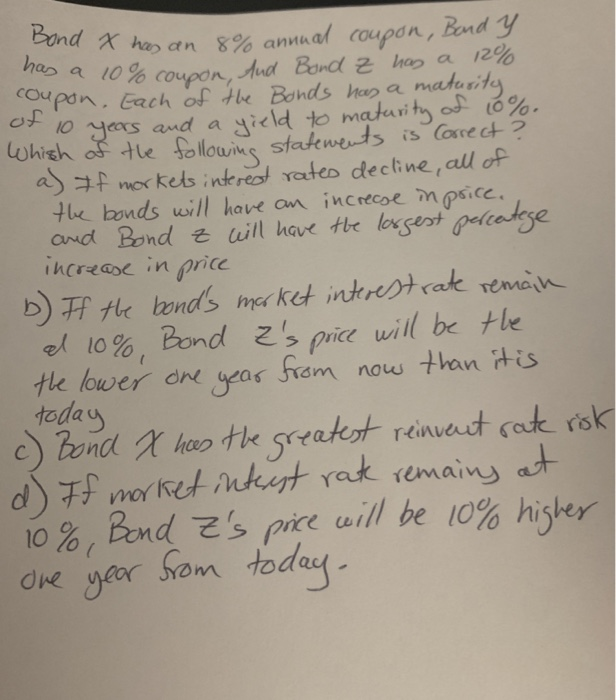 Bond X has an 8% annual coupon, Bond Y
has a 10% coupon, And Bond Z has a 12%
coupon. Each of the Bonds has a maturity
of 10 years and a yield to maturity of 10%.
Whish of the following statements is Correct?
a) If morkets interest rates decline, all of
the bonds will have an increase in price.
and Bond Z will have the largest percentege
increase in price
b) If the bond's market interest rate remain
at 10%, Bond Z's price will be the
the lower one year from now than it is
today
c) Bond X has the greatest reinvent rate risk
d) If morket interst rate remains at
10%, Bond Z's price will be 10% higher
one year from today.